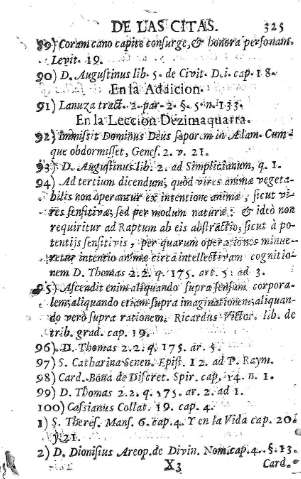 DE LAS CITAS. 325
89) Coram cano capite consurge, & honora personam.
Levit. 19.
90) D. Augustinus lib. 5. de Civit. D.i. cap. 18.
En la Adaicion.
91) Lanuza tract. 2. par. 2. §. 5. n. 133.
En la Leccion Dezimaquarta.
92) Immissit Dominus Deus saporem in Ædam. Cum-
que obdormisset, Genes. 2. v. 21.
93) D. Augustinus lib. 2. ad Simplicianum, q. 1.
94) Ad tertium dicendum, quòd vires animæ vegeta-
bilis non operantur ex intentione animæ, sicut vi-
res sensitivæ, sed per modum naturæ: & ideò non
requiritur ad Raptum ab eis abstractio, sicut à po-
tentijs sensitivis, per quarum operationes minue-
retur intentio animæ circà intellectivam cognitio-
nem D. Thomas 2. 2. q. 175. art. 5. ad 3.
95) Ascendit enim aliquando supra sensum corpora-
lem, aliquando etiam supra imaginationem, aliquan-
do verò supra rationem. Ricardus Victor. lib. de
trib. grad. cap. 19.
96) D. Thomas 2. 2. q. 175. ar. 5.
97) S. Catharina Senen. Epist. 12. ad P. Raym.
98) Card. Bona de Discret. Spir. cap. 14. n. 1.
99) D. Thomas 2. 2. q. 175. ar. 2. ad 1.
100) Cassianus Collat. 19. cap. 4.
1) S. Theres. Mans. 6. cap. 4. Y en la Vida cap. 20.
y 21.
2) D. Dionisius Areop. de Divin. Nom. cap. 4. §. 13.
X3 Card.